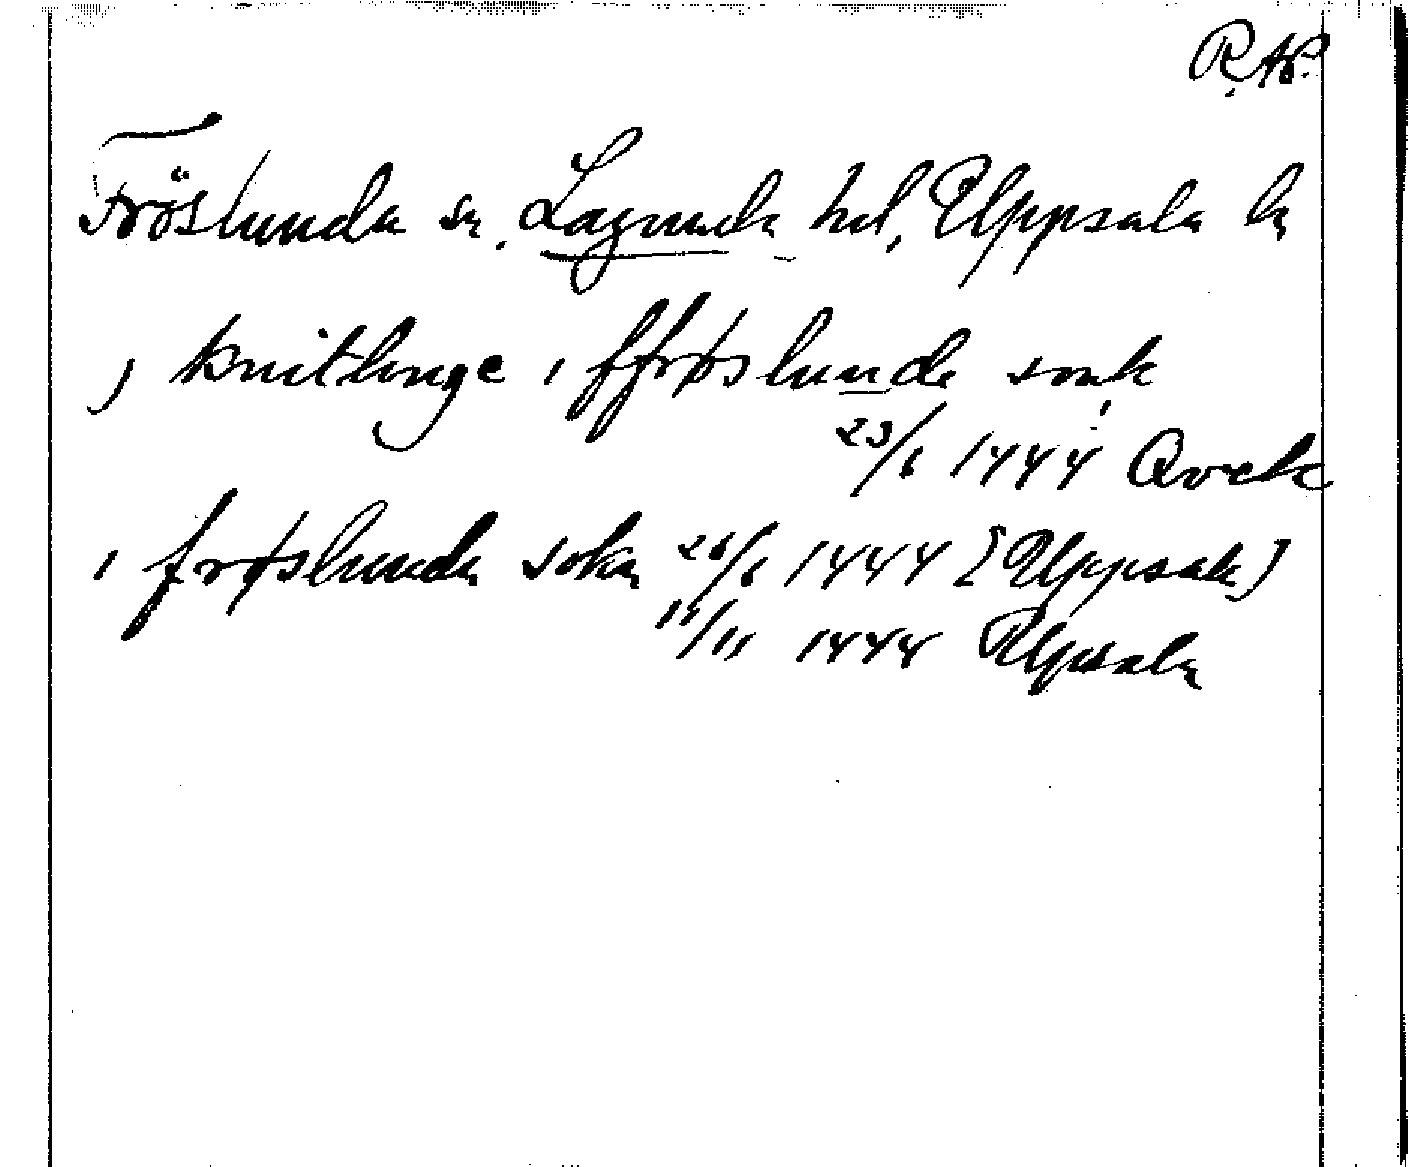 R.Ap.
Fröslunda sn. Lagunda hd, Uppsala ln
j knitlinge i ffrøslunda sonk
23/6 1444 Aveln
i frøslunda sokn 26/6 1444 [Uppsala]
11/11 1444 Upsala